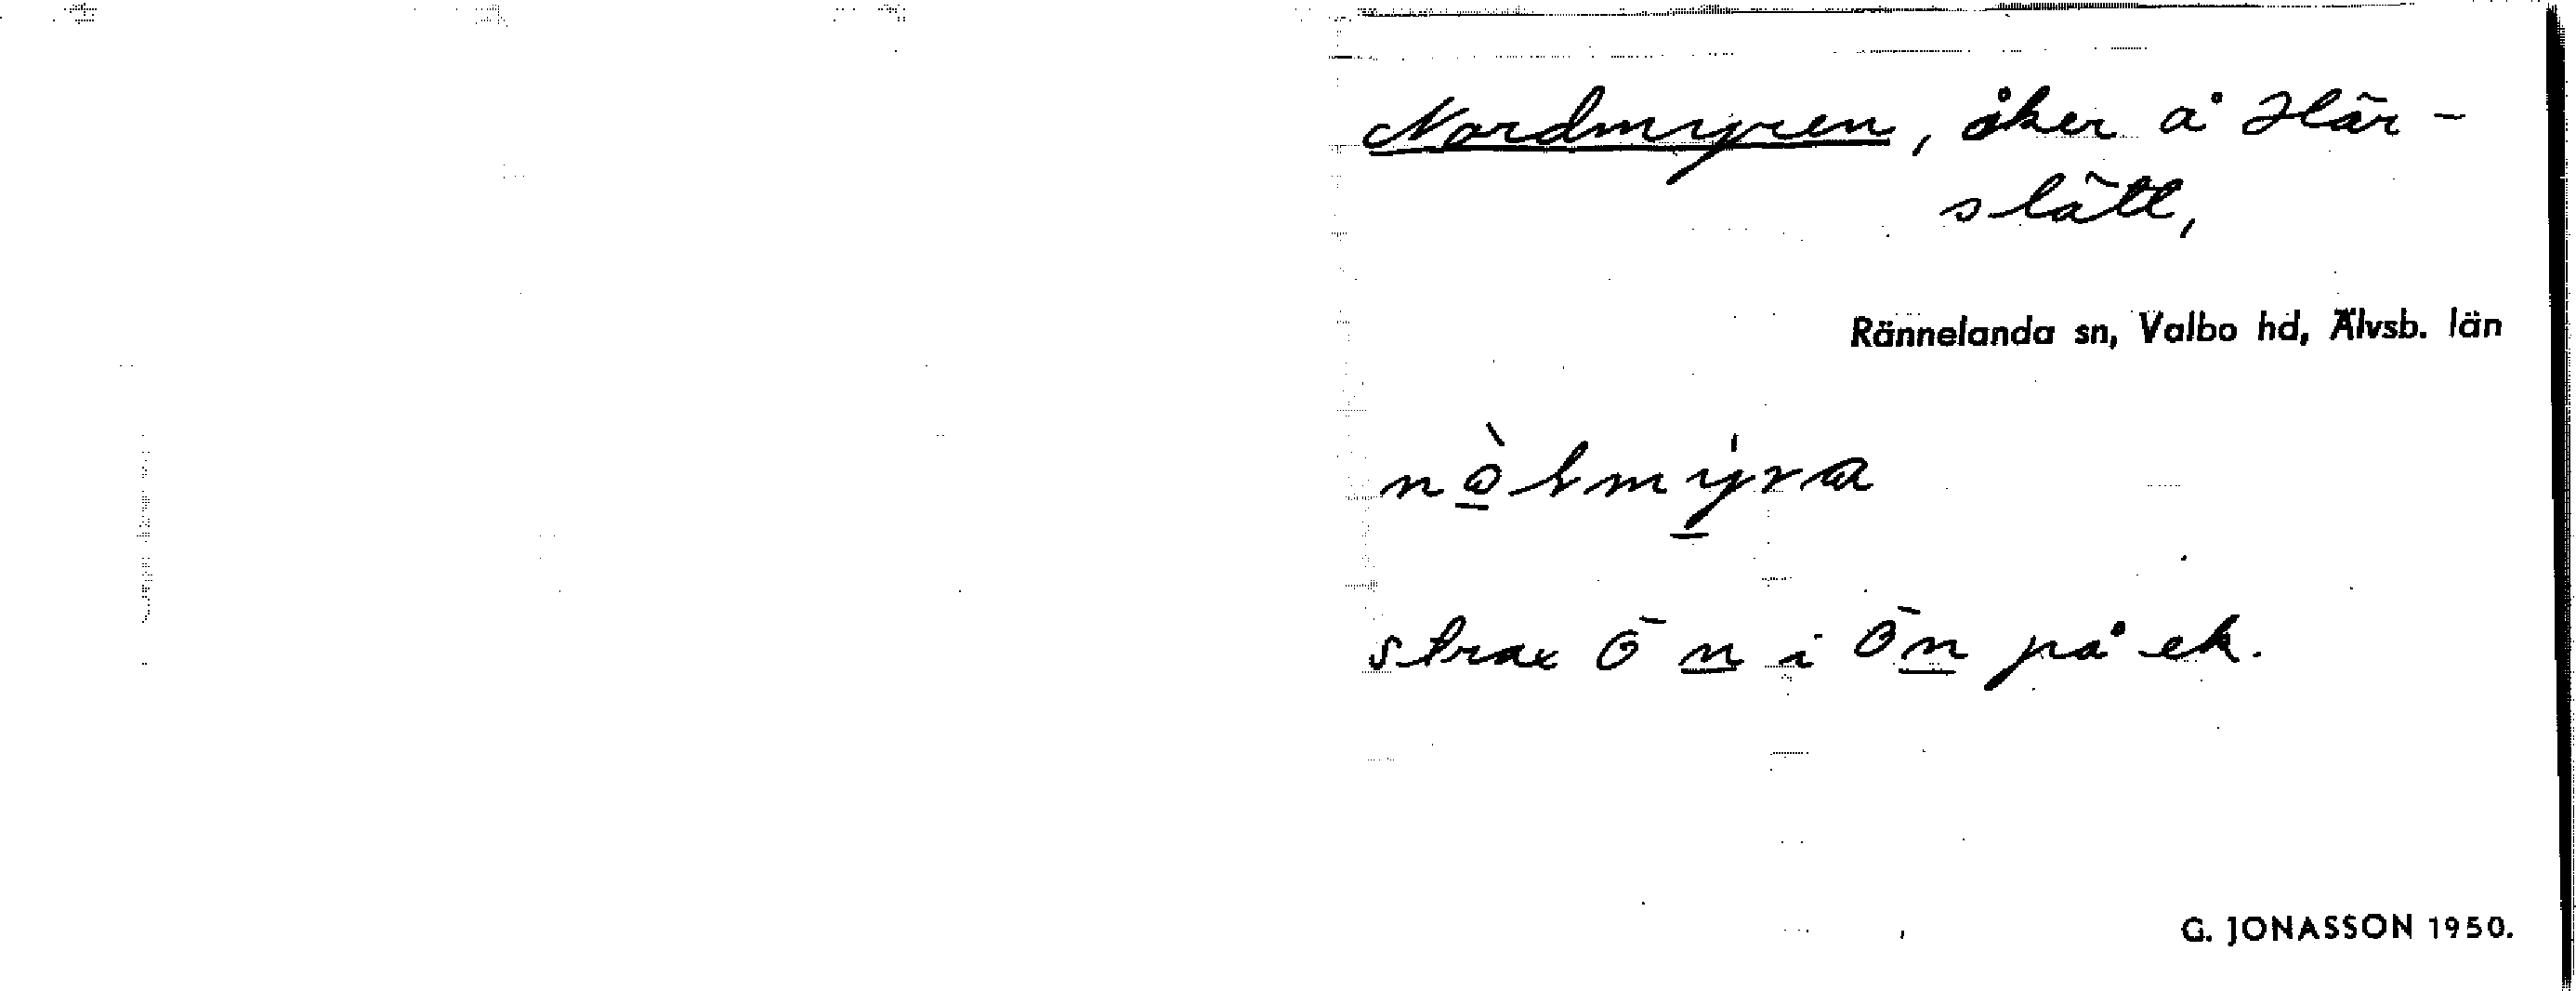 Nordmyren, åker å Här-
slätt,
Rännelanda sn, Valbo hd, Älvsb. län
strax Ö n i Ön på ek.
G. JONASSON 1950.